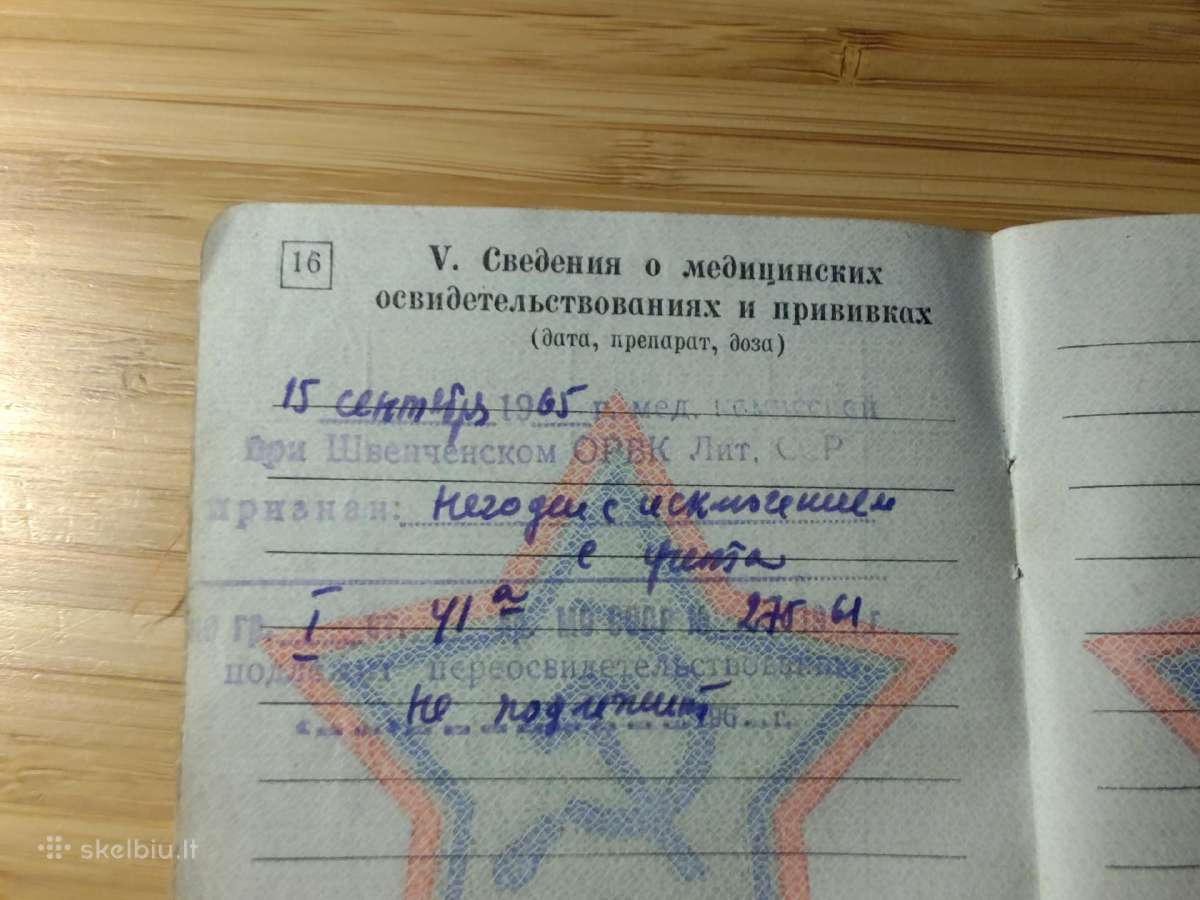 16
V. Сведения о медицинских
освидетельствованиях и прививках
(дата, препарат, доза)
15 сентября 1965 г. мед. комиссией
при Швенчёнском ОРВК Лит. ССР
признан: Негоден с исключением
с учета
по гр. I ст. 41а пр. МО СССР № 275 1961 г.
подлежит переосвидетельствованию
Не подлежит 196 г.
skelbiu.lt